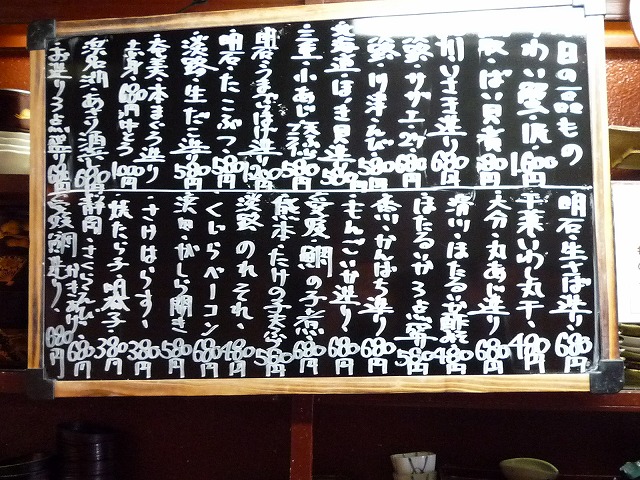 本日の一品もの
ずわい蟹・浜 1,600円
ばい貝煮 580円
いさき造り 680円
サザエ・2ケ 680円
川津えび 580円
北海道・ほっき貝造り 580円
三重・小あじ天ぷら 580円
明石・うまづらはげ造り
明石・たこぶつ 580円
淡路・生だこ造り 580円
奄美・本まぐろ造り
赤身680円 中とろ 1,000円
浜名湖・あさり酒むし 680円
お造り3点盛り
明石生さば造り 680円
千葉いわし丸干 480円
大分・丸あじ造り 680円
ほたるいか酢みそ 480円
ほたるいか3点盛 580円
香川・かんぱち造り 680円
もんごいか造り 680円
愛媛・鯛の子煮 680円
熊本・たけの子天ぷら 580円
淡路 のれそれ 480円
くじらベーコン 680円
淡路・がしら開き 580円
さけはらす 380円
焼たら子・明太子 380円
静岡・さくらえびかきあげ 680円
愛媛鯛造り 680円